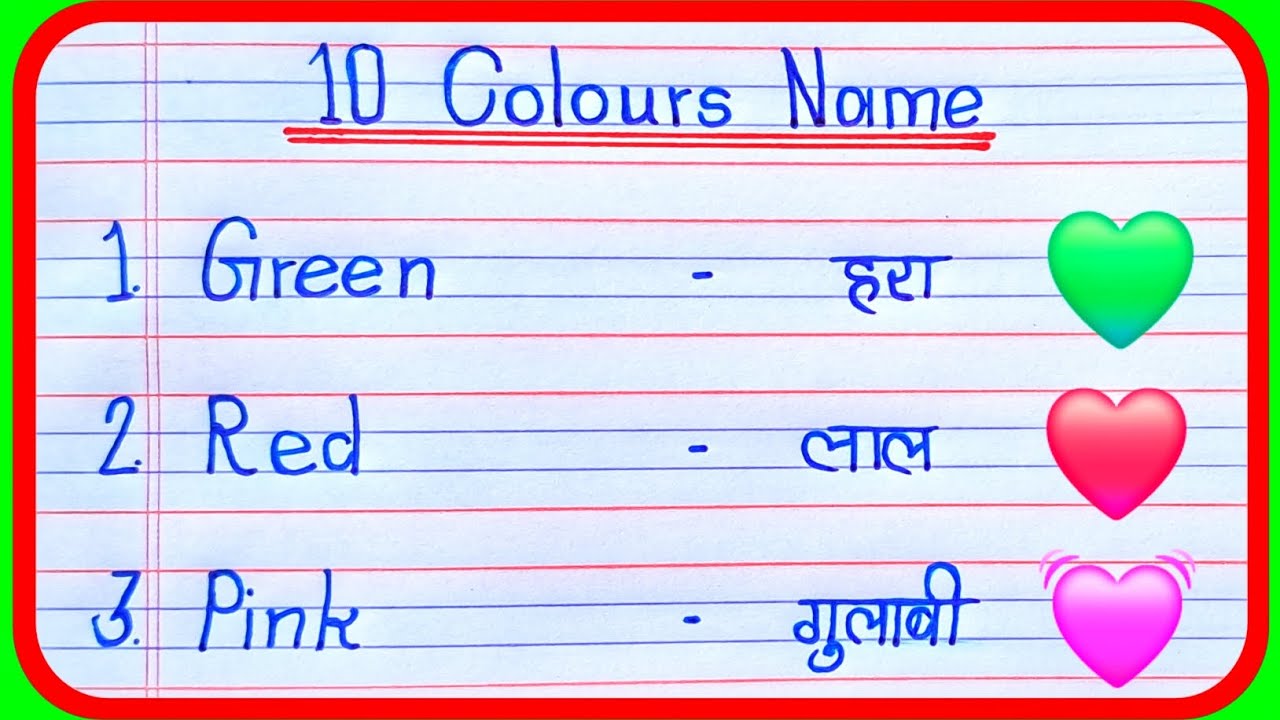 10 Colours Name
1. Green - हरा
2. Red - लाल
3. Pink - गुलाबी